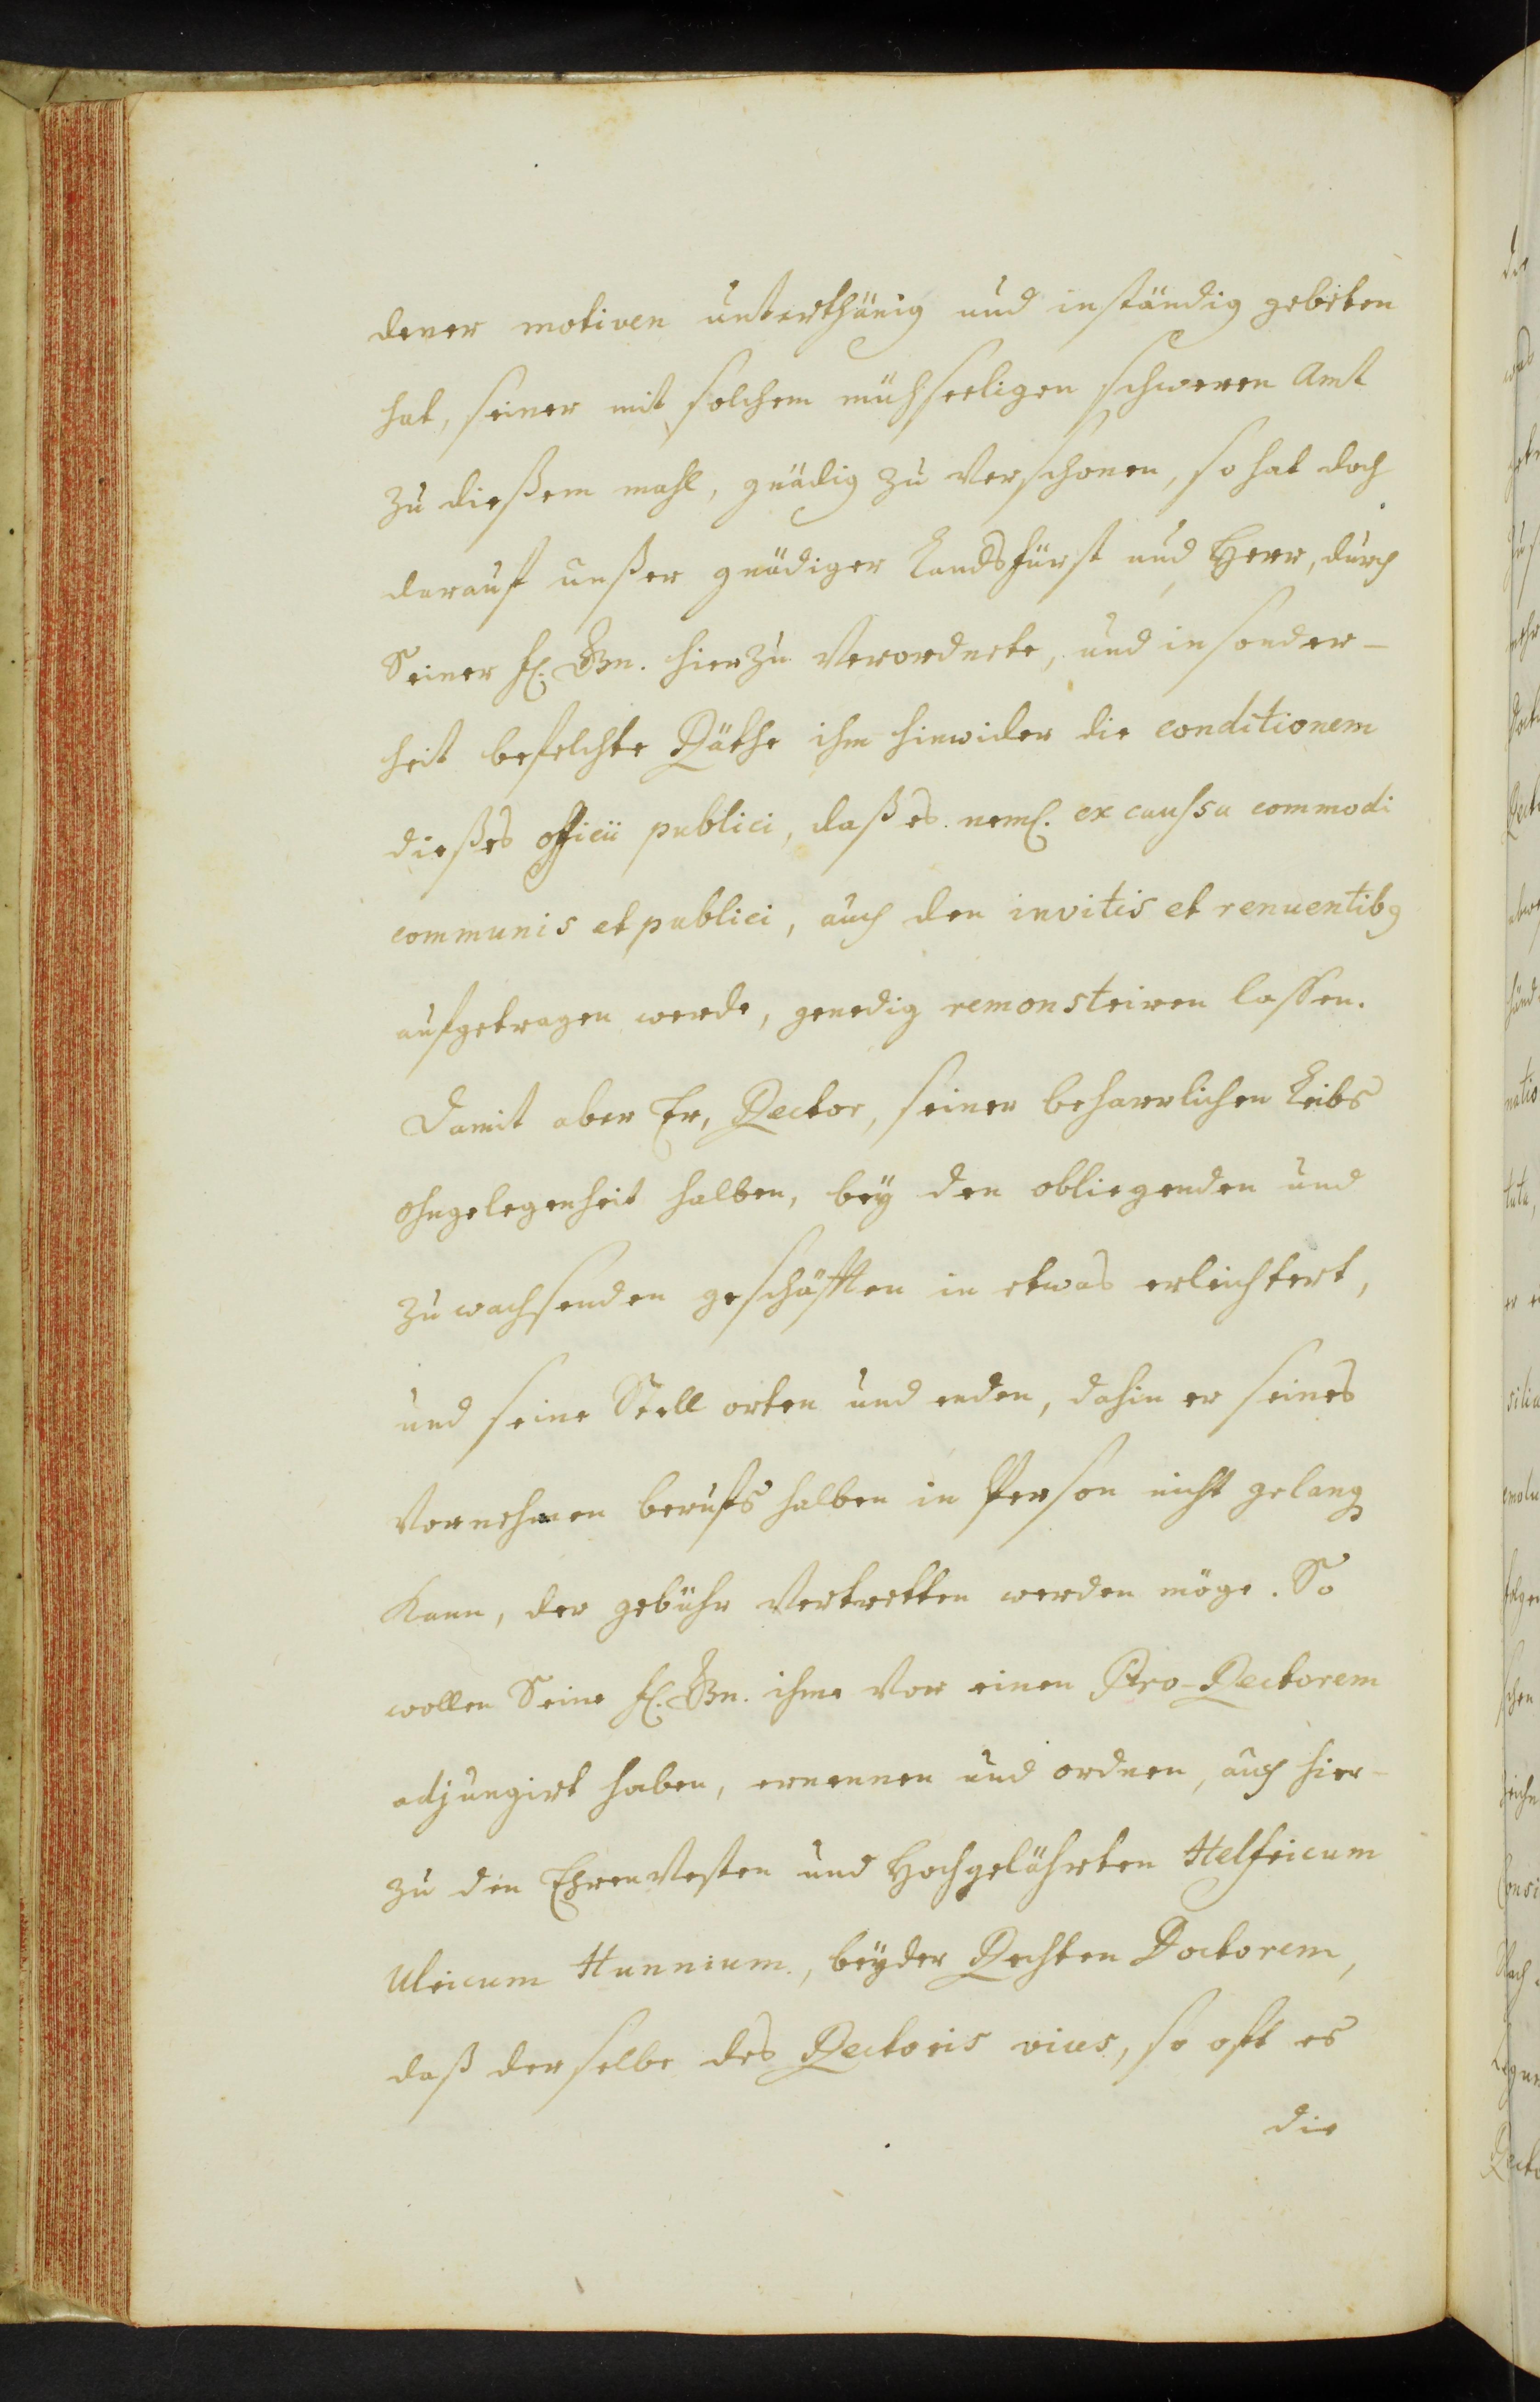 dener motiven unterthänig und inständig gebeten
hat, seiner mit solchem mühseeligen schweren Amt
zu dießem mahl, gnädig zu verschonen, so hat doch
darauf unßer gnädiger Landsfürst und Herr, durch
Seiner fl. Gn. hierzu verordnete, und insonder-
heit befelchte Räthe ihm hinwider die conditionem
dießes officii publici, daß es neml. ex caussa commodi
communis et publici, auch den invitis et renuentibꝫ
aufgetragen werde, genedig remonstriren lassen.
Damit aber Er, Rector, seiner beharrlichen Leibs
ohngelegenheit halben, bey den obliegenden und
zuwachsenden geschäfften in etwas erleichtert,
und seine Stell orten und enden, dahin er seines
Vornehmen berufs halben in Person nicht gelang
kann, der gebühr vertretten werden möge. So
wollen Seine fl. Gn. ihme vor einen Pro-Rectorem
adjungirt haben, ernennen und ordnen, auch hier-
zu den Ehrenvesten und Hochgelährten Helfricum
Ulricum Hunnium, beyder Rechten Doctorem,
daß derselbe des Rectoris vices, so oft es
die